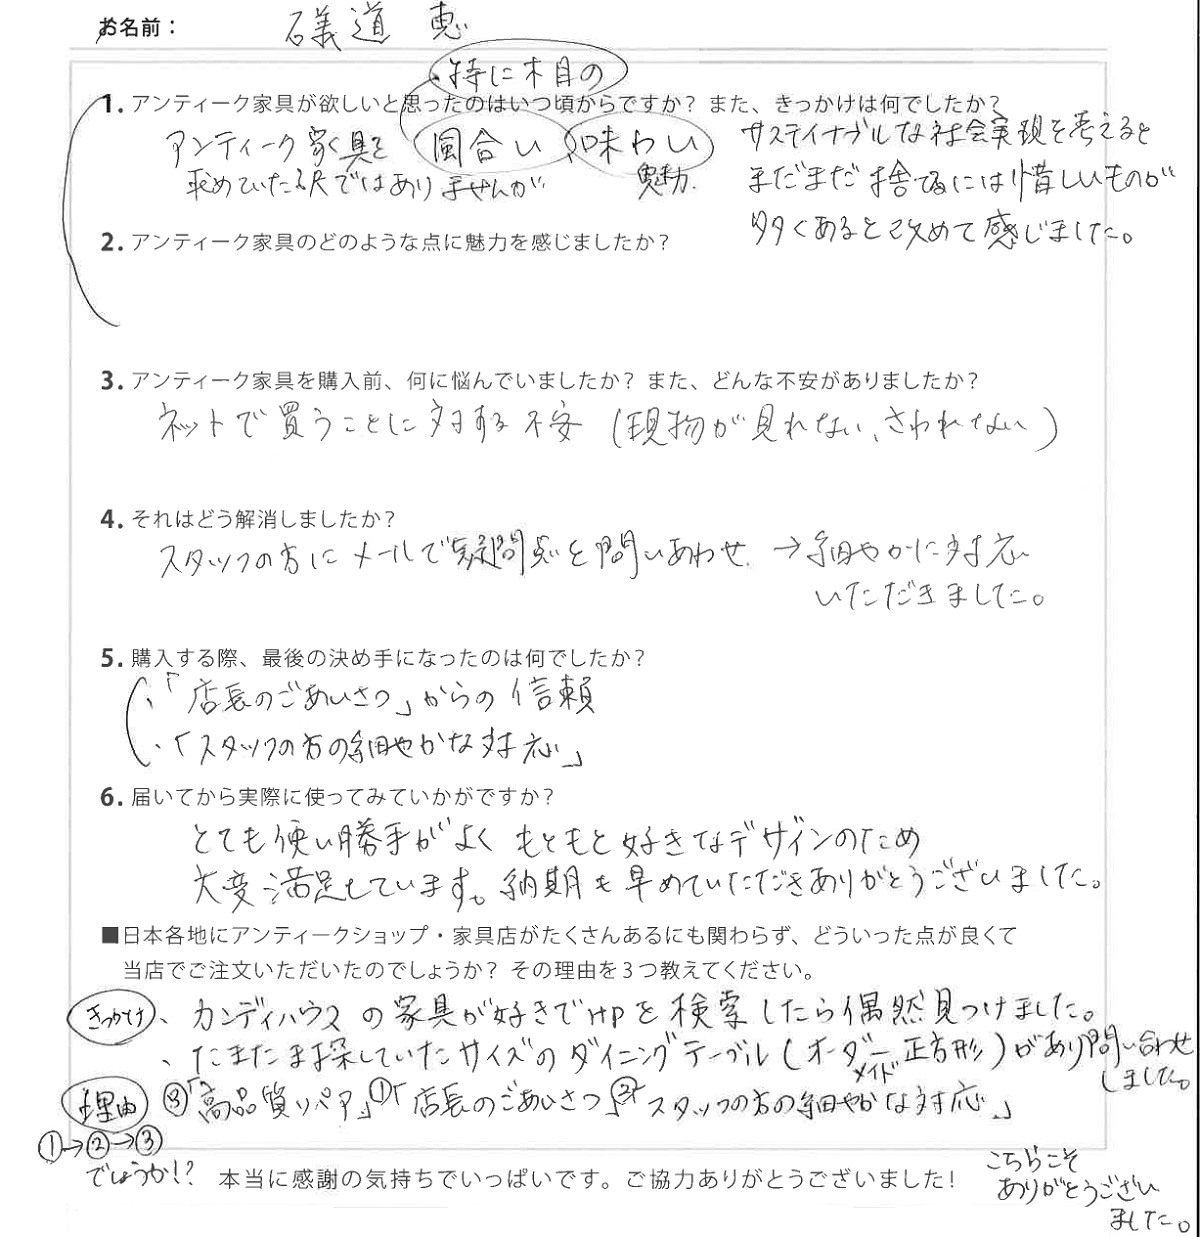 お名前： 礒道 恵
特に木目の
1. アンティーク家具が欲しいと思ったのはいつ頃からですか？ また、きっかけは何でしたか？
アンティーク家具を 風合い、味わい
求めていた訳ではありませんが 魅力
サスティナブルな社会実現を考えると
まだまだ捨てるには惜しいものが
多くあると改めて感じました。
2. アンティーク家具のどのような点に魅力を感じましたか？
3. アンティーク家具を購入前、何に悩んでいましたか？ また、どんな不安がありましたか？
ネットで買うことに対する不安（現物が見れない、さわれない）
4. それはどう解消しましたか？
スタッフの方にメールで疑問点を問いあわせ →細やかに対応
いただきました。
5. 購入する際、最後の決め手になったのは何でしたか？
・「店長のごあいさつ」からの信頼
・「スタッフの方の細やかな対応」
6. 届いてから実際に使ってみていかがですか？
とても使い勝手がよく もともと好きなデザインのため
大変満足しています。納期も早めていただきありがとうございました。
■日本各地にアンティークショップ・家具店がたくさんあるにも関わらず、どういった点が良くて
当店でご注文いただいたのでしょうか？ その理由を３つ教えてください。
きっかけ、カンディハウスの家具が好きでHPを検索したら偶然見つけました。
、たまたま探していたサイズのダイニングテーブル（オーダーメイド 正方形）があり問い合わせ
しました。
理由 ③「高品質リペア」①「店長のごあいさつ」②「スタッフの方の細やかな対応」
①→②→③
でしょうか!?
本当に感謝の気持ちでいっぱいです。ご協力ありがとうございました！
こちらこそ
ありがとうござい
ました。